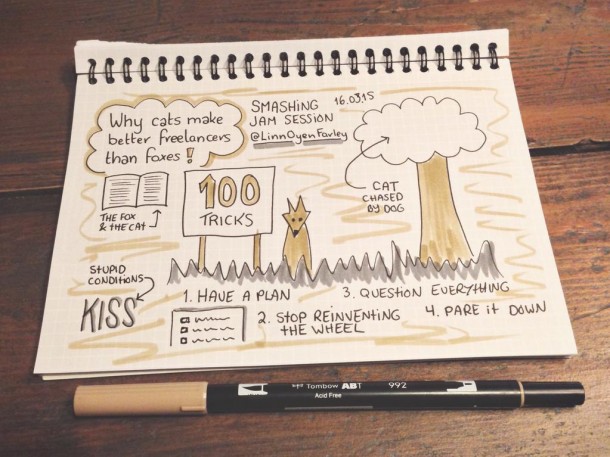 Why cats make
better freelancers
than foxes!
SMASHING
JAM SESSION
16.03.15
@LinnOyenFarley
THE FOX
& THE CAT
100
TRICKS
CAT
CHASED
BY DOG
STUPID
CONDITIONS
KISS
1. HAVE A PLAN
2. STOP REINVENTING
THE WHEEL
3. QUESTION EVERYTHING
4. PARE iT DOWN
Tombow ABT
992
Acid Free